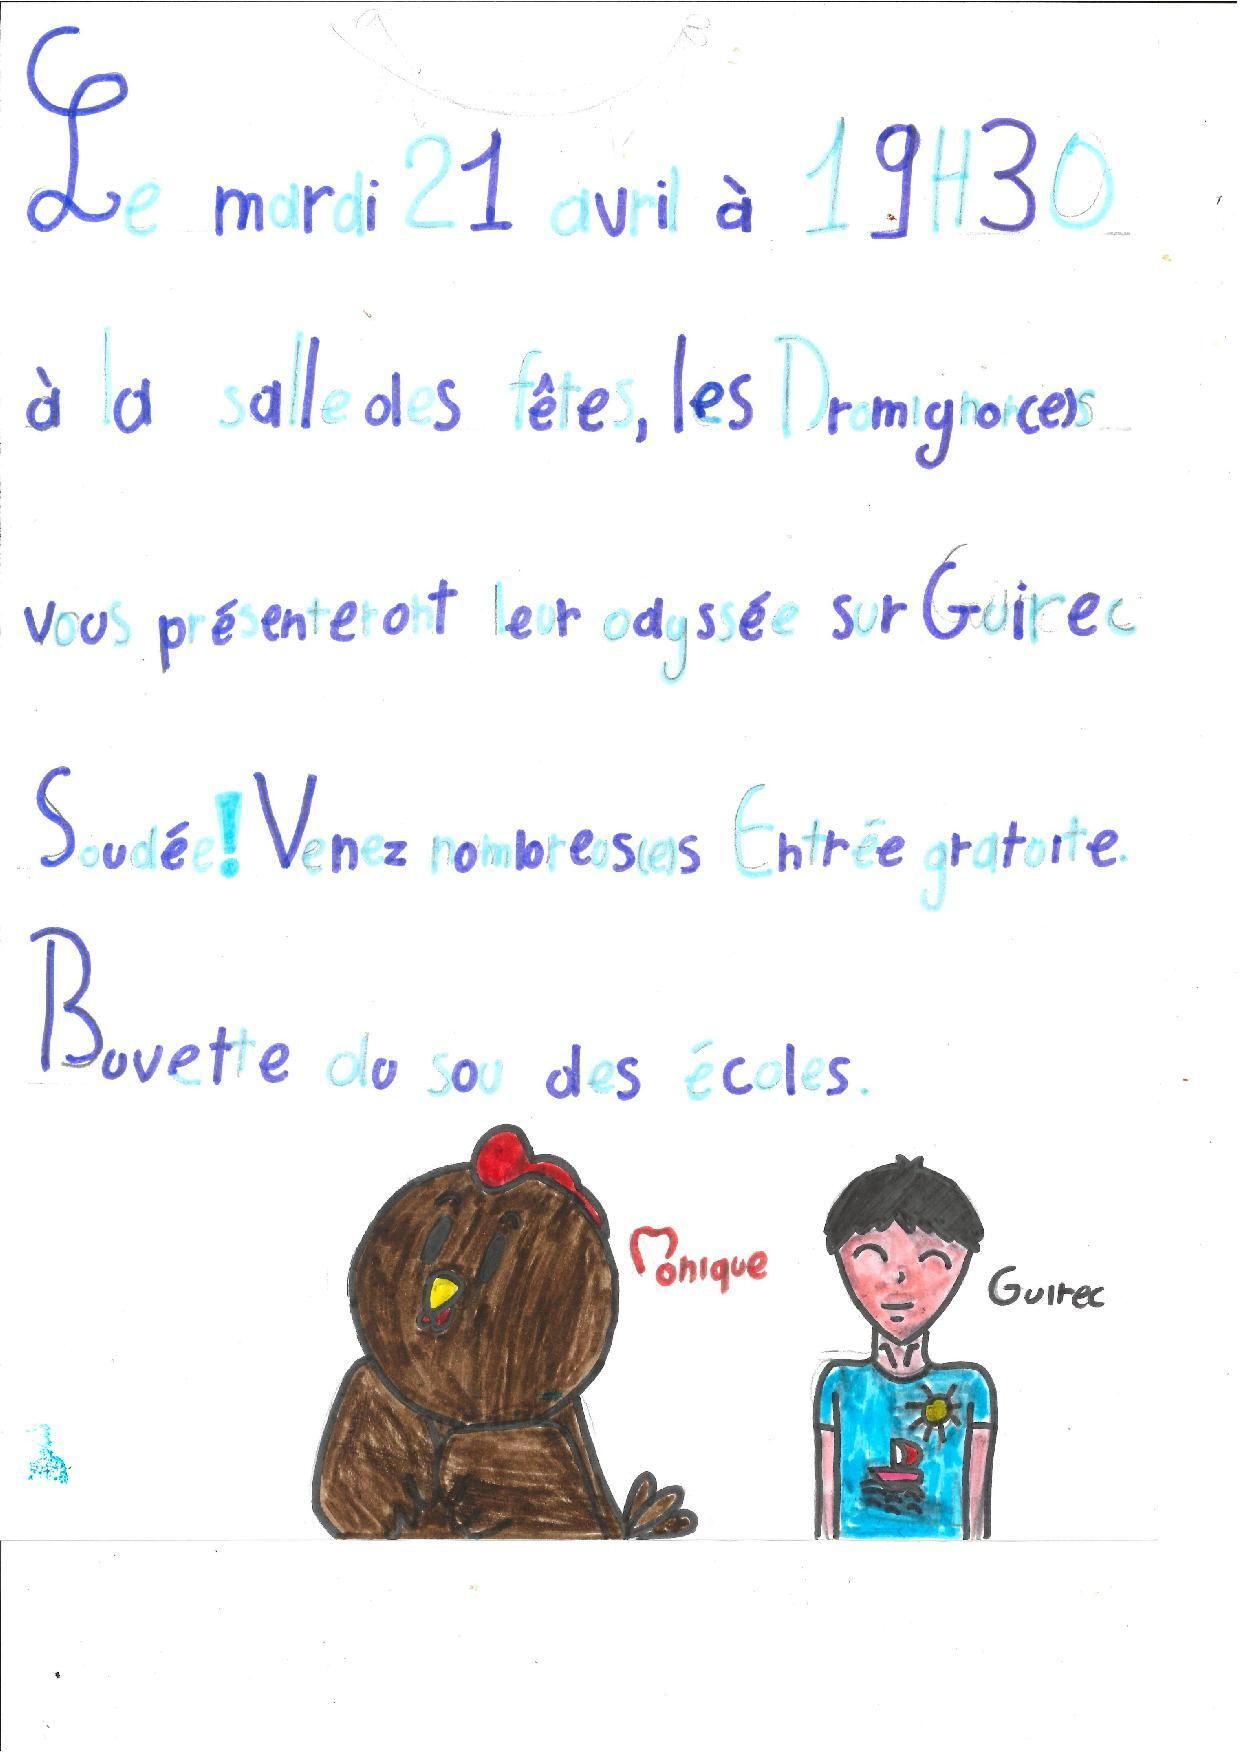 Le mardi 21 avril à 19H30
à la salle des fêtes, les Dromignon(e)s
vous présenteront leur odyssée sur Guirec
Soudée! Venez nombreus(e)s Entrée gratuite.
Buvette du sou des écoles.
Monique
Guirec